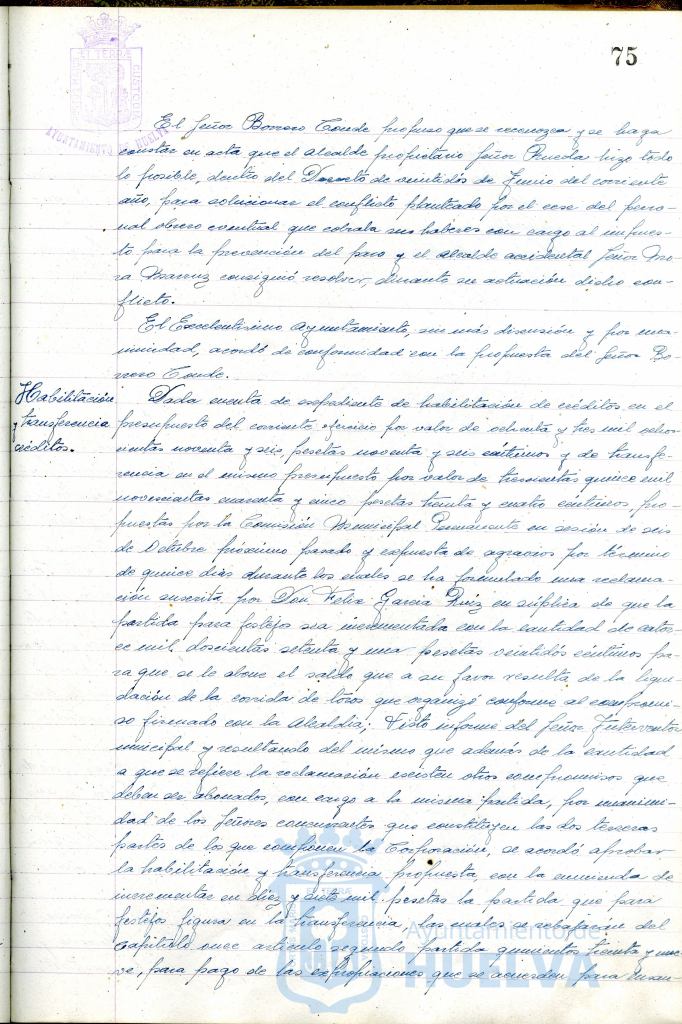 75
El Señor Borrero Conde propuso que se reconozca y se haga
constar en acta que el Alcalde propietario Señor Rueda hizo todo
lo posible, dentro del Decreto de veintidós de Junio del corriente
año, para solucionar el conflicto planteado por el cese del perso-
nal obrero eventual que cobraba sus haberes con cargo al impues-
to para la prevención del paro y el Alcalde accidental Señor Mo-
ra consiguió resolver, durante su actuación dicho con-
flicto.
El Excelentísimo Ayuntamiento, sin más discusión y por una-
nimidad, acordó de conformidad con la propuesta del Señor Bo-
rrero Conde.
Habilitación
y transferencia
créditos.
Dada cuenta de expediente de habilitación de créditos en el
presupuesto del corriente ejercicio por valor de ochenta y tres mil ocho-
cientas noventa y seis, pesetas noventa y seis céntimos y de transfe-
rencia en el mismo presupuesto por valor de trescientas quince mil
novecientas cuarenta y cinco pesetas treinta y cuatro céntimos, pro-
puestas por la Comisión Municipal Permanente en sesión de seis
de Octubre próximo pasado y expuesta de agravios por término
de quince días durante los cuales se ha formulado una reclama-
ción suscrita por Don Felix Garcia Ruiz en súplica de que la
partida para festejos sea incrementada con la cantidad de cator-
ce mil doscientas setenta y una pesetas veintidós céntimos pa-
ra que se le abone el saldo que a su favor resulta de la liqui-
dación de la corrida de toros que organizó conforme al compromi-
so firmado con la Alcaldía; Visto informe del Señor Interventor
municipal y resultando del mismo que además de la cantidad
a que se refiere la reclamación existen otros compromisos que
deben ser abonados, con cargo a la misma partida, por unanimi-
dad de los Señores concurrentes que constituyen las dos terceras
partes de los que componen la Corporación, se acordó aprobar
la habilitación y transferencia propuesta, con la enmienda de
incrementar en diez y siete mil pesetas la partida que para
festejos figura en la transferencia, las cuales se del
Capítulo once artículo segundo partida quinientos treinta y nue-
ve, para pago de las expropiaciones que se acuerden para ensan-
AYUNTAMIENTO HUELVA
Ayuntamiento de
HUELVA